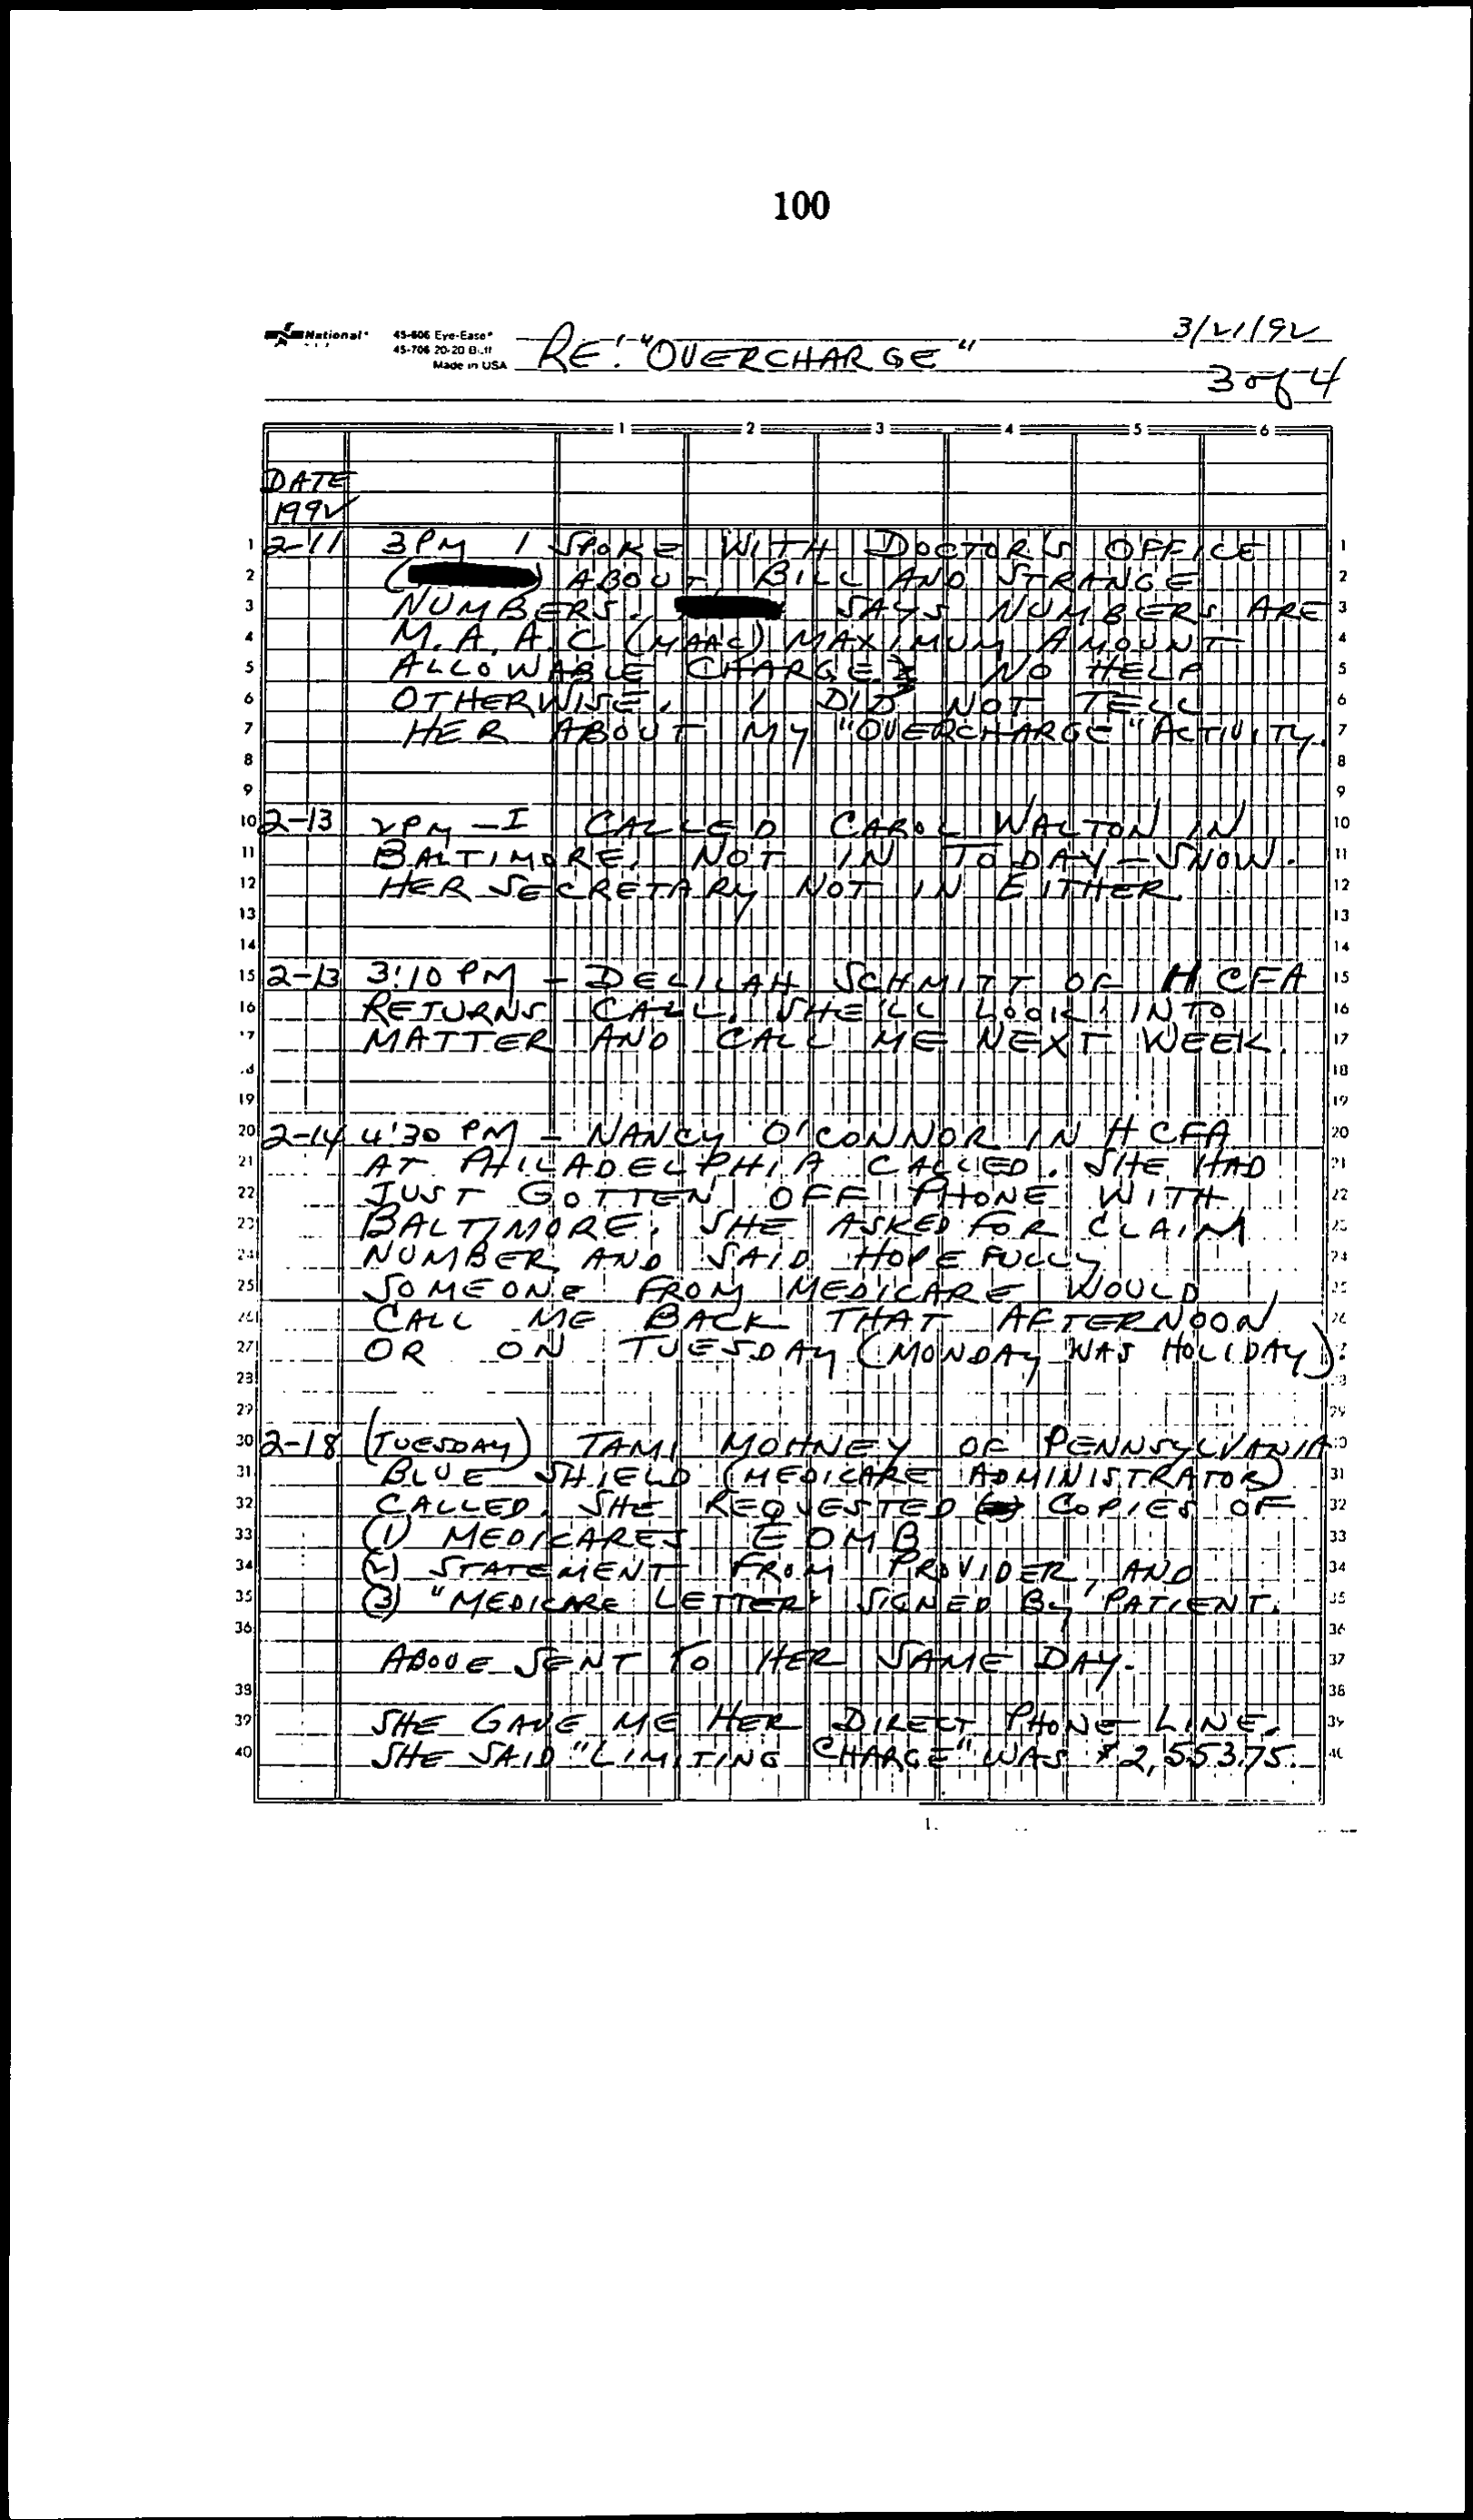 100
National®
45-606 Eye-Ease®
45-706 20-20 Buff
Made in USA
RE: "OVERCHARGE"
3/21/92
3 of 4
1 2 3 4 5 6
DATE
1992
2-11 3PM I SPOKE WITH DOCTOR'S OFFICE
( ) ABOUT BILL AND STRANGE
NUMBERS. SAYS NUMBERS ARE
M.A.A.C (MAAC) MAXIMUM AMOUNT
ALLOWABLE CHARGE. NO HELP
OTHERWISE. I DID NOT TELL
HER ABOUT MY "OVERCHARGE" ACTIVITY.
2-13 2PM - I CALLED CAROL WALTON IN
BALTIMORE. NOT IN TODAY - SNOW.
HER SECRETARY NOT IN EITHER.
2-13 3:10 PM - DELILAH SCHMITT OF HCFA
RETURNS CALL. SHE'LL LOOK INTO
MATTER AND CALL ME NEXT WEEK.
2-14 4:30 PM - NANCY O'CONNOR IN HCFA
AT PHILADELPHIA CALLED. SHE HAD
JUST GOTTEN OFF PHONE WITH
BALTIMORE. SHE ASKED FOR CLAIM
NUMBER AND SAID HOPEFULLY
SOMEONE FROM MEDICARE WOULD
CALL ME BACK THAT AFTERNOON
OR ON TUESDAY (MONDAY WAS HOLIDAY).
2-18 (TUESDAY) TAMI MOHNEY OF PENNSYLVANIA
BLUE SHIELD (MEDICARE ADMINISTRATOR)
CALLED. SHE REQUESTED COPIES OF
(1) MEDICARES EOMB
(2) STATEMENT FROM PROVIDER, AND
(3) "MEDICARE LETTER" SIGNED BY PATIENT.
ABOVE SENT TO HER SAME DAY.
SHE GAVE ME HER DIRECT PHONE LINE.
SHE SAID "LIMITING CHARGE" WAS $2,553.75.